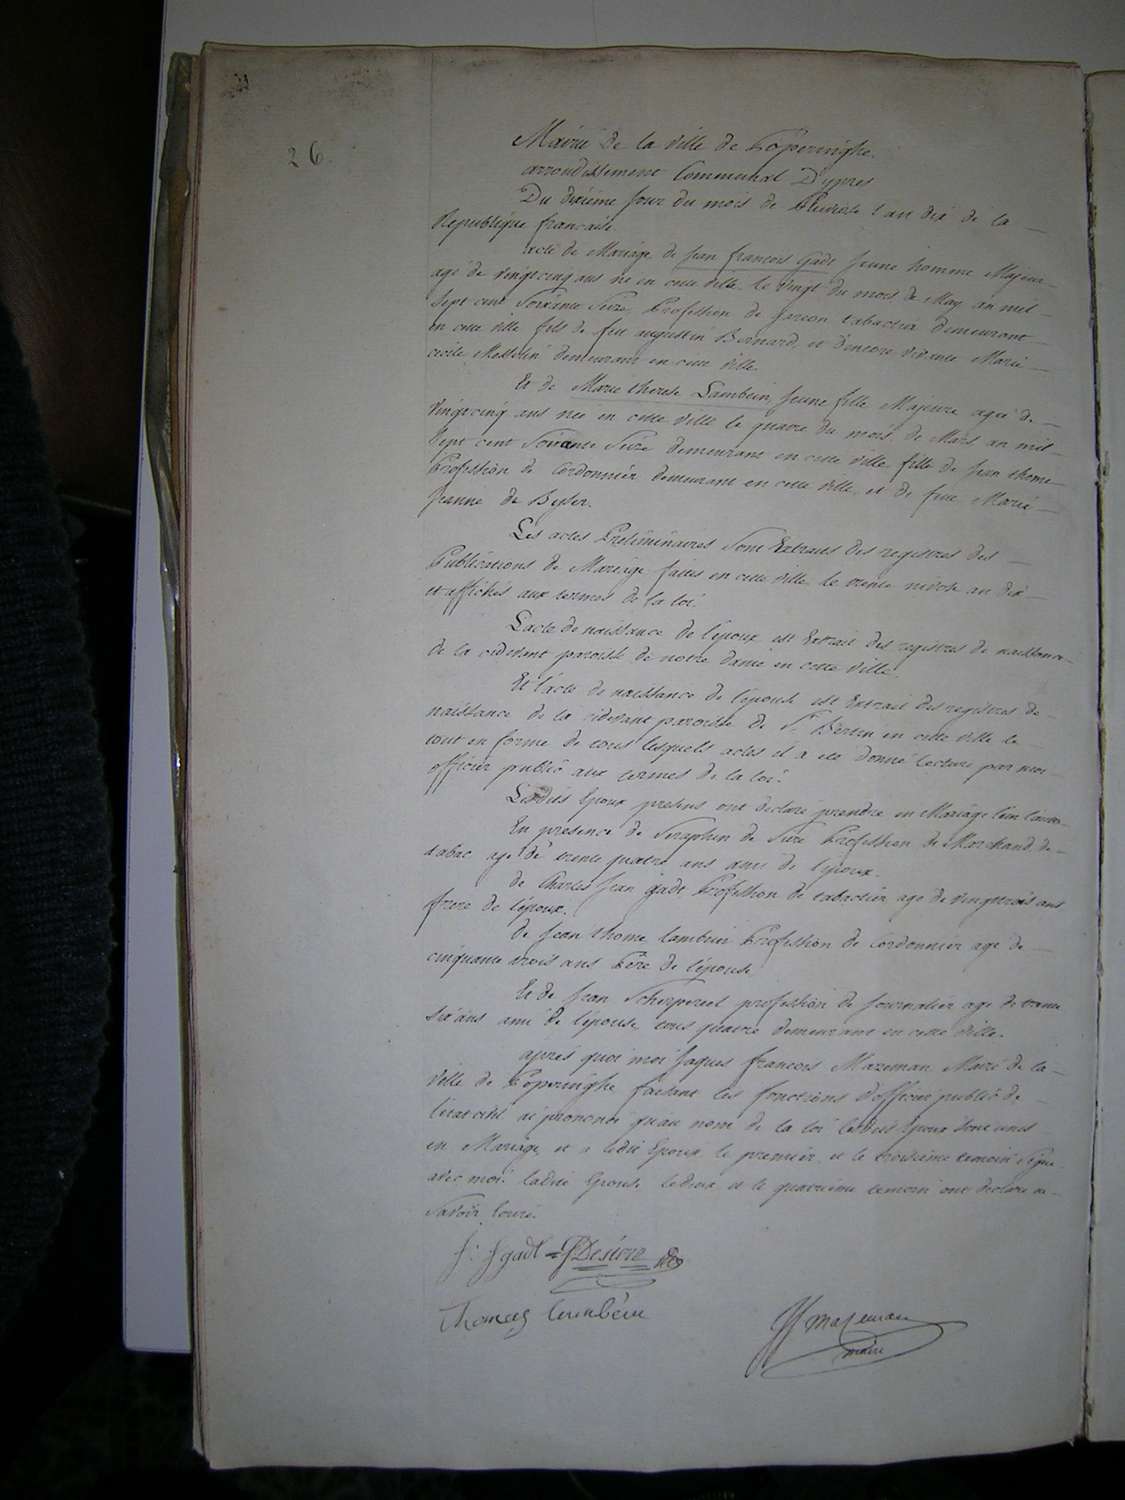 26
Mairie de la ville de Poperinghe.
arrondissement Communal Dypres
Du dixieme jour du mois de Pluviose l'an dix de la
Republique francaise
acte de Mariage de jean francois Gadt jeune homme Majeur
agé de vingtcinq ans né en cette ville le vingt du mois de May an mil
sept cent soixante seize, Profession de garcon tabactier demeurant
en cette ville fils de feu augustin Bernard, et d'encore vivante Marie
cecile Messelin demeurant en cette ville.
Et de Marie therese Lambein, jeune fille Majeure ageé de
vingtcinq ans neé en cette ville le quatre du mois de Mars an mil
sept cent soixante seize demeurant en cette ville fille de jean thome
Profession de Cordonnier demeurant en cette ville, et de feue Marie
jeanne de Byser.
Les actes Preliminaires sont Extraits des registres des
Publications de Mariage faites en cette ville le trente nivose an dix
et affichés aux termes de la loi.
L'acte de naissance de l'époux est Extrait des registres de naissance
de la cidevant paroisse de notre dame en cette ville.
Et l'acte de naissance de l'épouse est Extrait des registres de
naissance de la cidevant paroisse de St. Bertin en cette ville le
tout en forme de tous lesquels actes il a eté donné lecture par moi
officier public aux termes de la loi.
Lesdits Epoux presens ont declaré prendre en Mariage l'un l'autre
En presence de Seraphin de Sire Profession de Marchand de
tabac agé de trente quatre ans ami de l'époux.
de Charles jean gadt Profession de tabactier age de vingttrois ans
frere de l'époux.
de jean thome lambein Profession de Cordonnier age de
cinquante trois ans Pere de l'épouse
Et de jean Scherpereel profession de journalier age de trente
six ans ami de l'épouse, tous quatre demeurant en cette ville.
après quoi moi jaques francois Mazeman Maire de la
ville de Poperinghe faisant les fonctions d'officier public de
l'etat civil ai prononcé qu'au nom de la loi lesdits Epoux sont unis
en Mariage, et a ledit Epoux le premier et le troisieme temoin signé
avec moi ladite Epouse ledeux et le quatrieme temoin ont declaré ne
savoir
j: f gadt = Desiere
Thomas Lambein
JF mazeman
maire